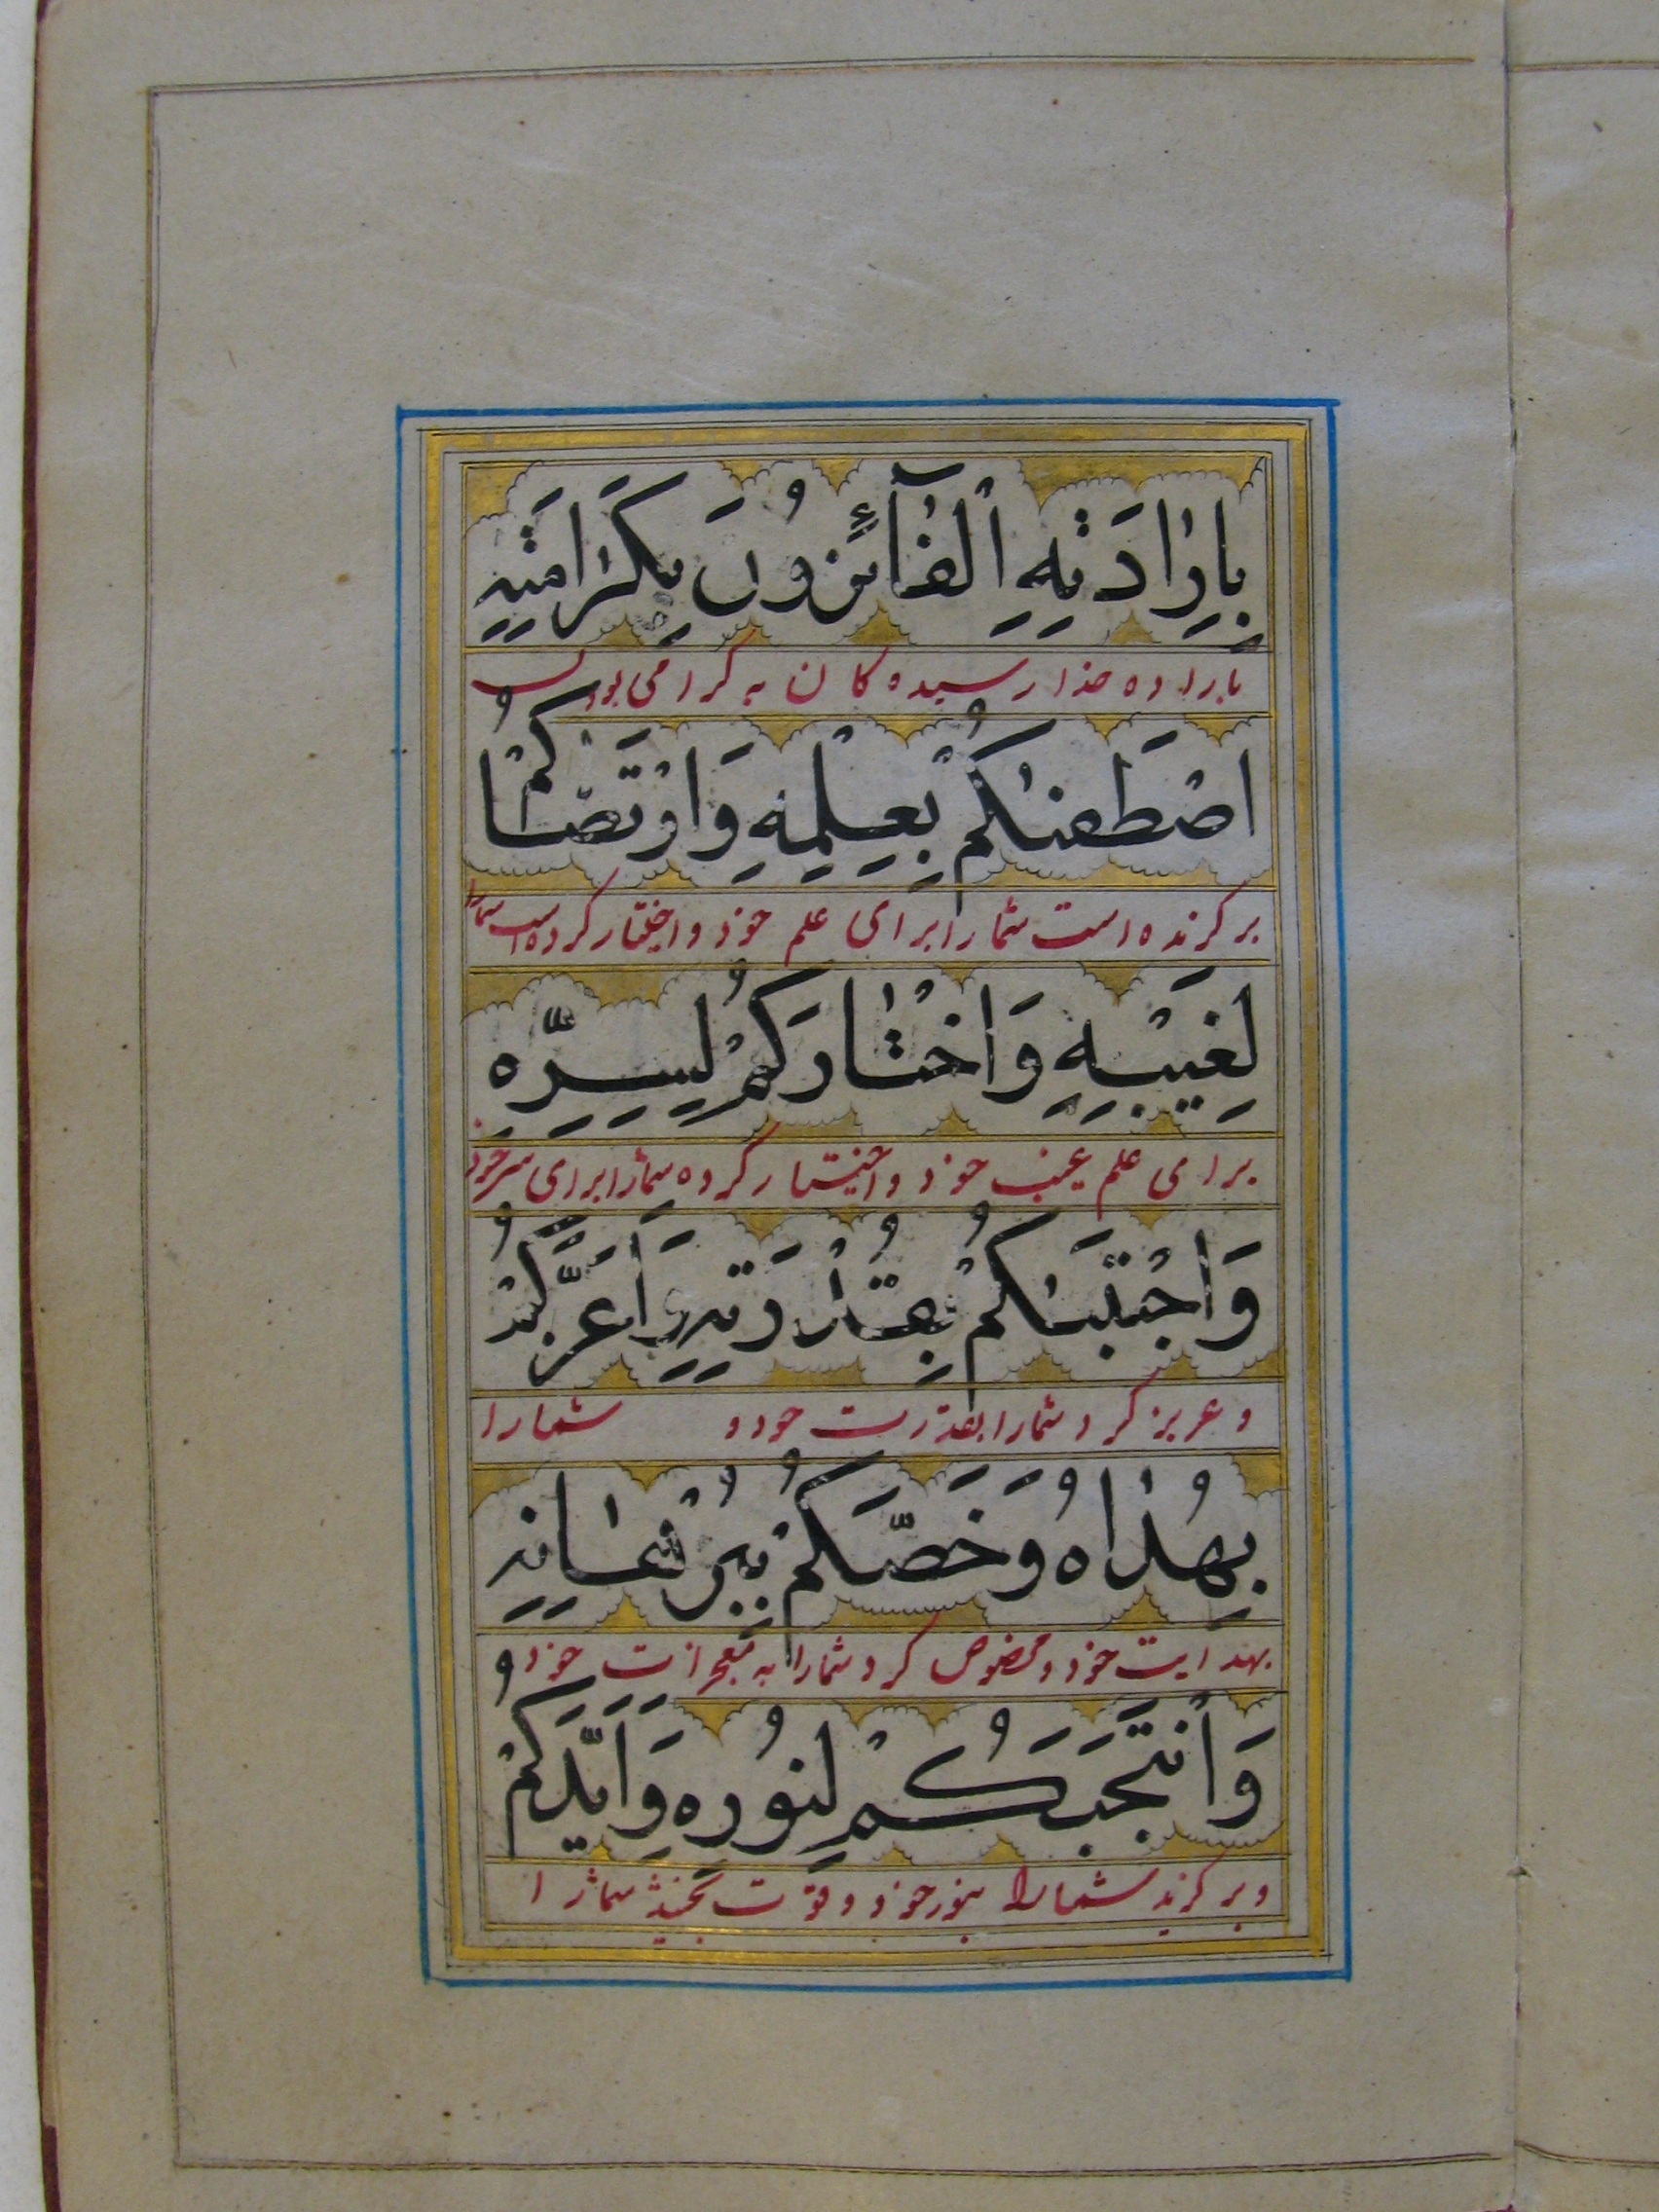 بِاِرٰادَتِهِ الْفٰآئِزُونَ بِكَرٰامَتِهِ
باراده خدا رسیده کان به کرامی بودن
اصْطَفىٰكُمْ بِعِلْمِهِ وَارْتَضٰاكُمْ
برکزنده است شما را برای علم خود و اختیار کرده است شما را
لِغَيْبِهِ وَاخْتٰارَكُمْ لِسِرِّهِ
برای علم غیب خود و اختیار کرده شما را برای سر خود
وَاجْتَبىٰكُمْ بِقُدْرَتِهِ اَعَزَّكُمْ
و عزیز کرد شما را بقدرت خود و شما را
بِهُدٰاهُ وَخَصَّكُمْ بِبُرْهٰانِهِ
بهدایت خود و مخصوص کرد شما را به معجزات خود
وَانْتَجَبَكُمْ لِنُورِهِ وَاَيَّدَكُمْ
و برکزید شما را بنور خود و قوّت بخشید شما را